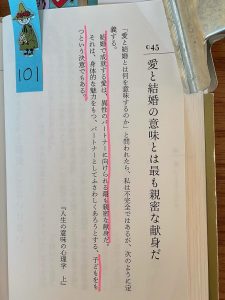 045
愛と結婚の意味とは最も親密な献身だ
「愛と結婚とは何を意味するのか」と問われたら、私は不完全ではあるが、次のように定
義する。
結婚で成就する愛は、異性のパートナーに向けられる最も親密な献身だ。
それは、身体的な魅力をもつ、パートナーとしてふさわしくあろうとする、子どもをも
つという決意でもある。
『人生の意味の心理学 上』
101